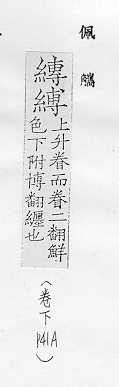 佩觿
縳縛上升眷而眷二翻鮮
色下附博翻纏也
(卷下 P41A)